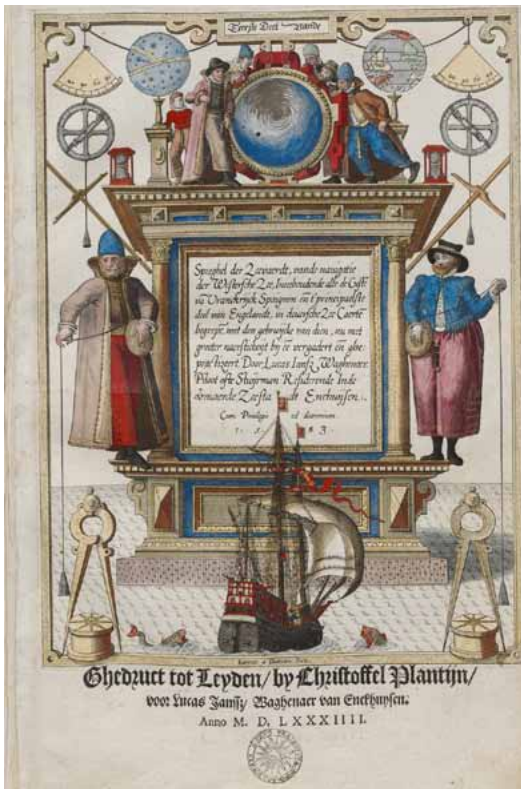 Eerste Deel vande
Spieghel der Zeevaerdt, vande navigatie
der Westersche Zee, Innehoudende alle de Custē
vā Vranckrijck Spaingnen en̄ t'principaelste
deel van Engelandt, in diversche Zee Caertē
begrepē, met den gebruijcke van dien, nu met
grooter naersticheijt bij eē vergadert en̄ ghe
practizeert Door Lucas Iansz Waghenaer
Piloot ofte Stuijrman Residerende Inde
vermaerde Zeestadt Enchuijsen.
Cum Privilegio ad decennium
1. 5 8 3.
Ghedruct tot Leyden/ by Christoffel Plantijn/
voor Lucas Janssz/ Waghenaer van Enckhuysen.
Anno M. D. LXXXIIII.